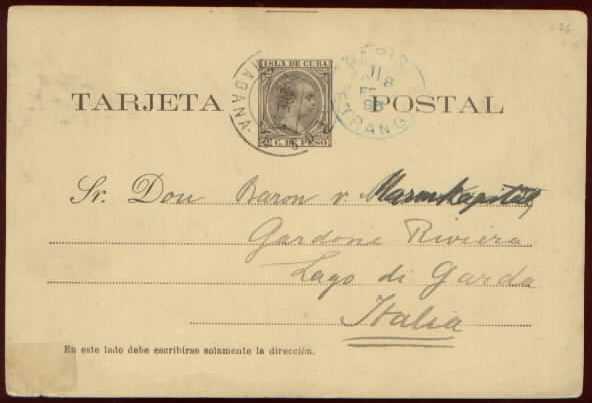 ISLA DE CUBA
TARJETA POSTAL
HABANA
PARIS
11
8
ETRANG
2 C. DE PESO
Sr. Don Baron v.
Gardone Riviera
Lago di Garda
Italia
En este lado debe escribirse solamente la dirección.